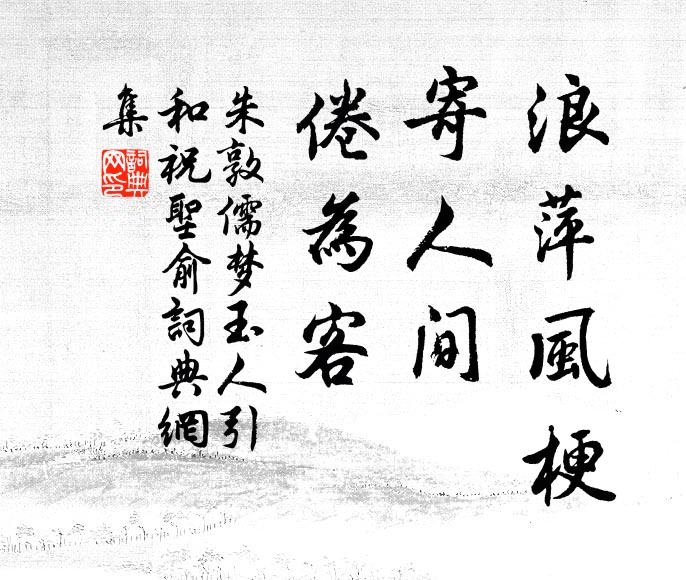 浪萍風梗
寄人間
倦為客
朱敦儒梦玉人引
和祝聖俞詞典網
集
詞典
网印